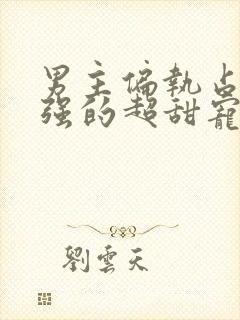 男主偏執占
強的超甜寵
劉雲天